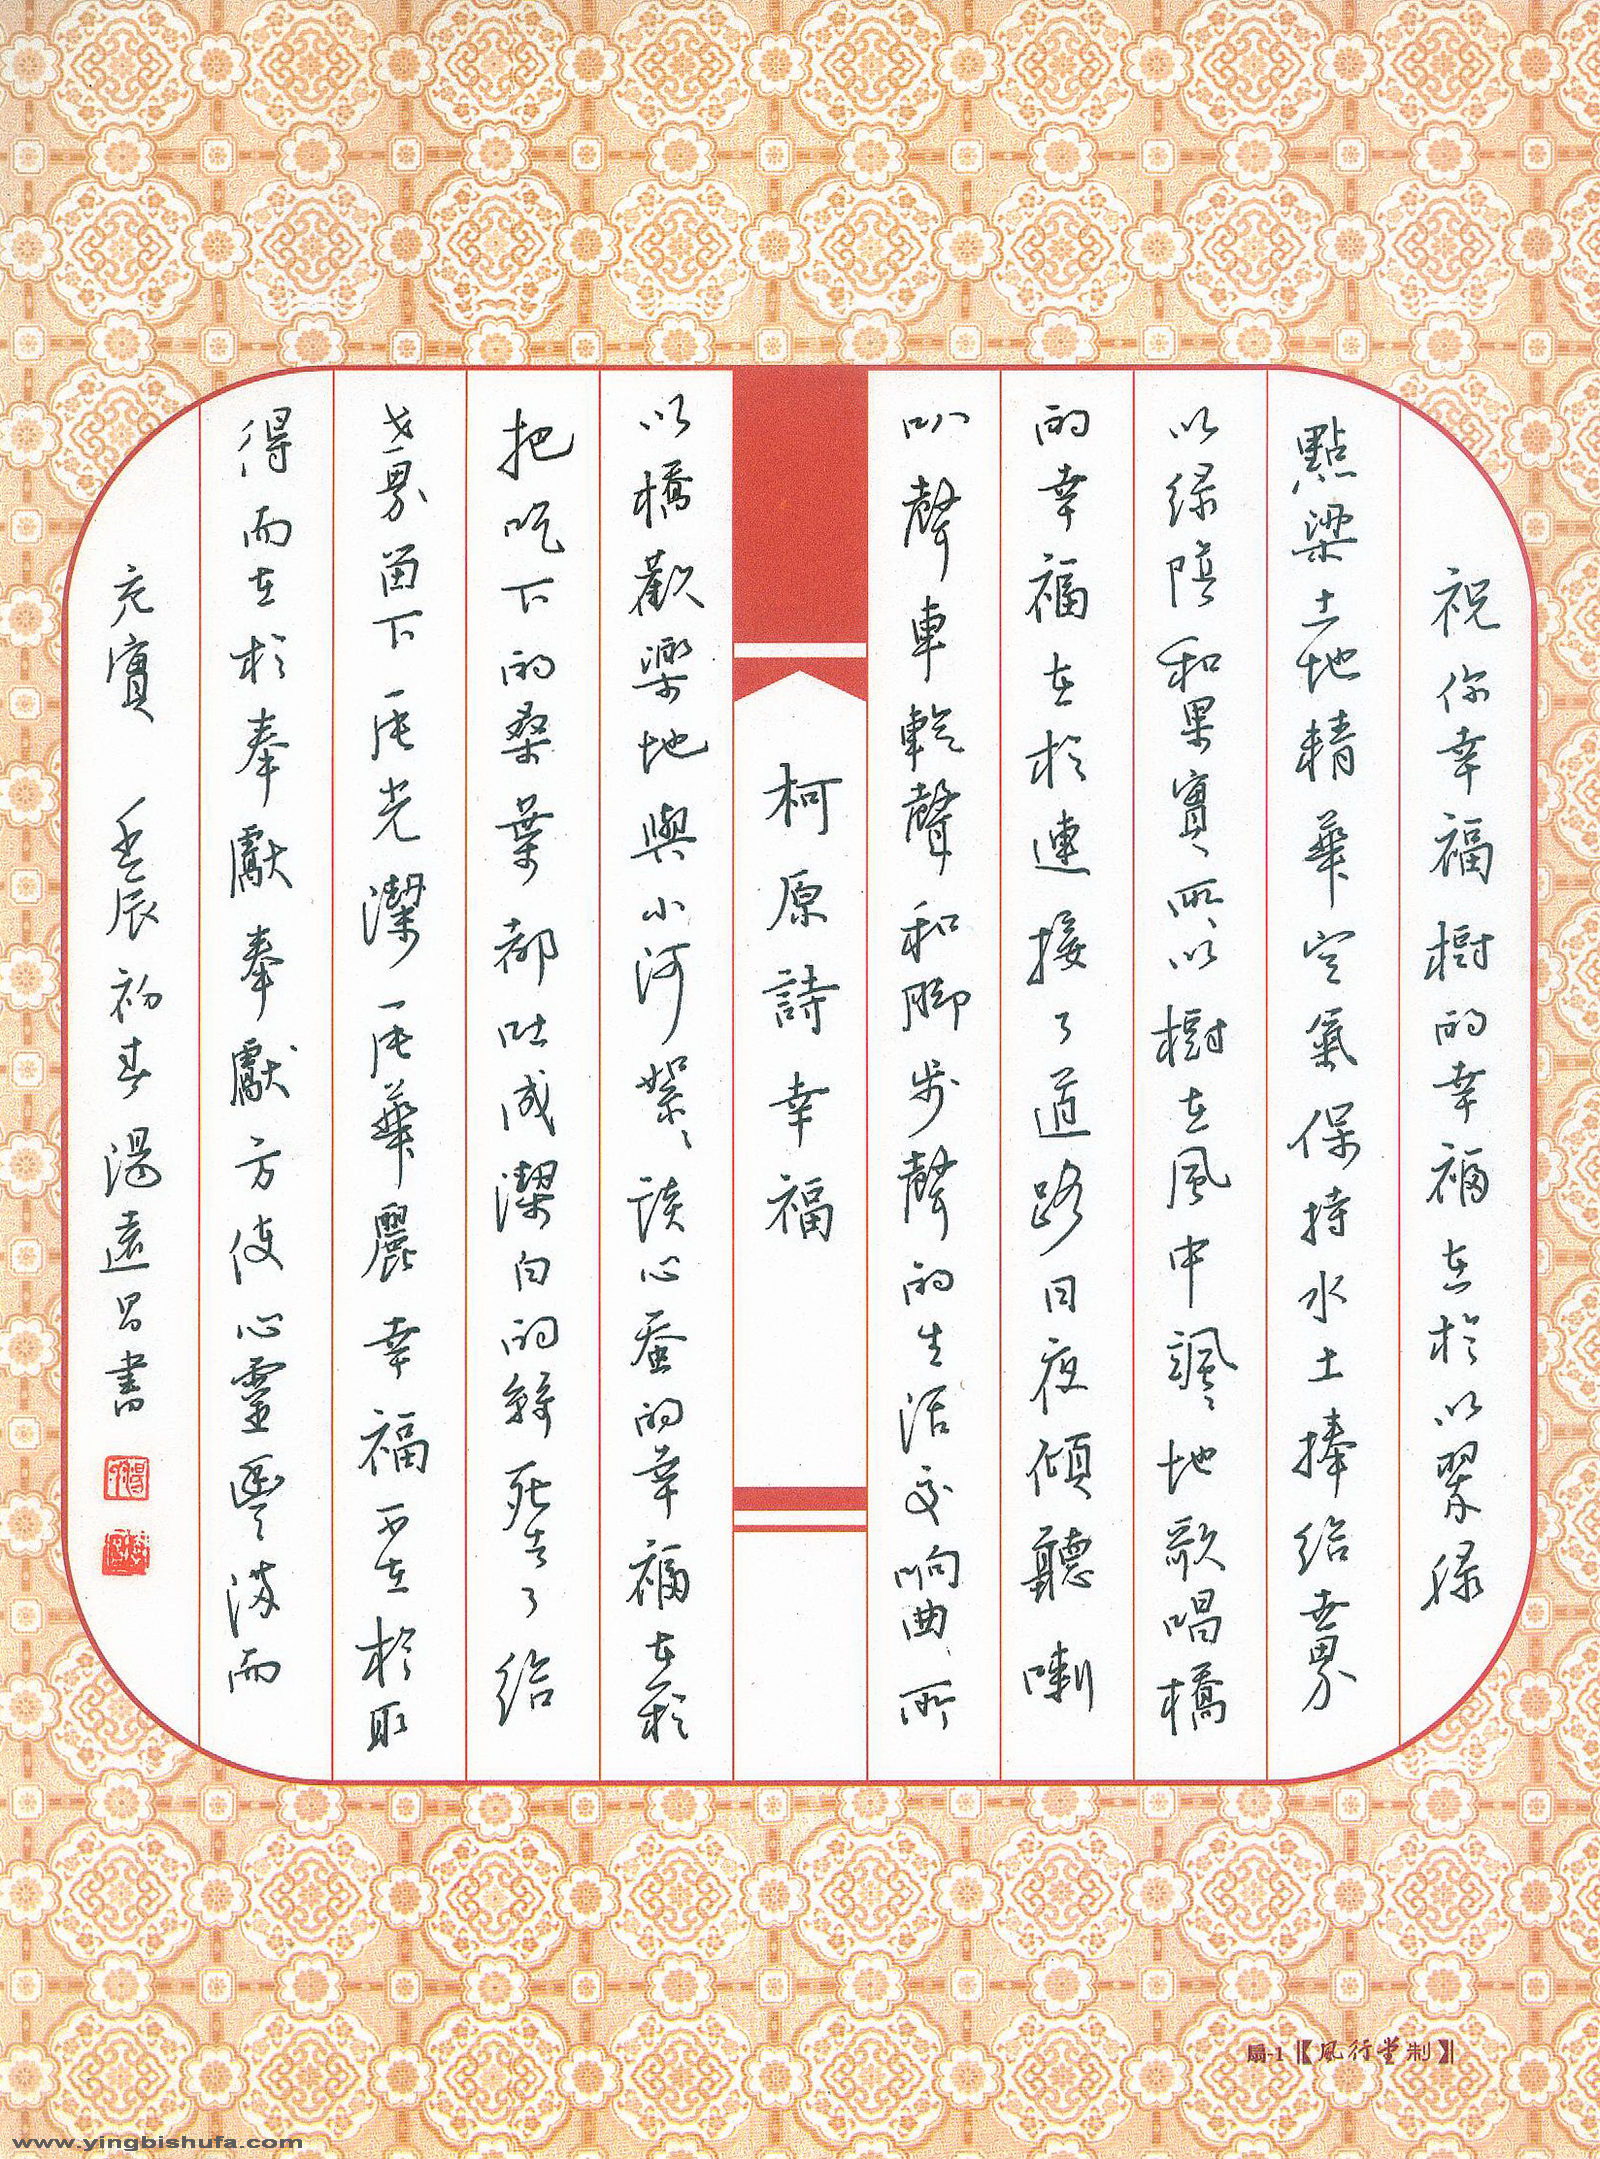 祝你幸福樹的幸福在於以翠綠
點染土地精華空氣保持水土捧給世界
以綠蔭和果實所以樹在風中颯颯地歌唱橋
的幸福在於連接了道路日夜傾聽喇
叭聲車輪聲和腳步聲的生活交响曲所
柯原詩幸福
以橋歡樂地與小河絮絮談心蚕的幸福在於
把吃下的桑葉都吐成潔白的絲死去了給
世界留下一片光潔一片華麗幸福不在於取
得而在於奉獻奉獻方使心靈豐滿而
充實 壬辰初春湯遠昌書
扇-1【風行堂制】
www.yingbishufa.com